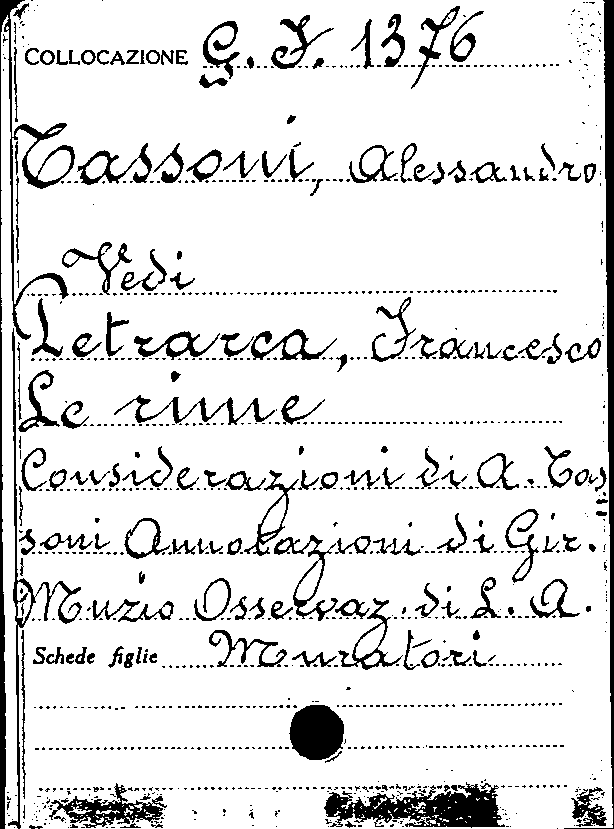 COLLOCAZIONE G. I. 1376
Tassoni, Alessandro
Vedi
Petrarca, Francesco
Le rime
Considerazioni di A. Tas=
soni Annotazioni di Gir.
Muzio Osservaz. di L. A.
Schede figlie Muratori